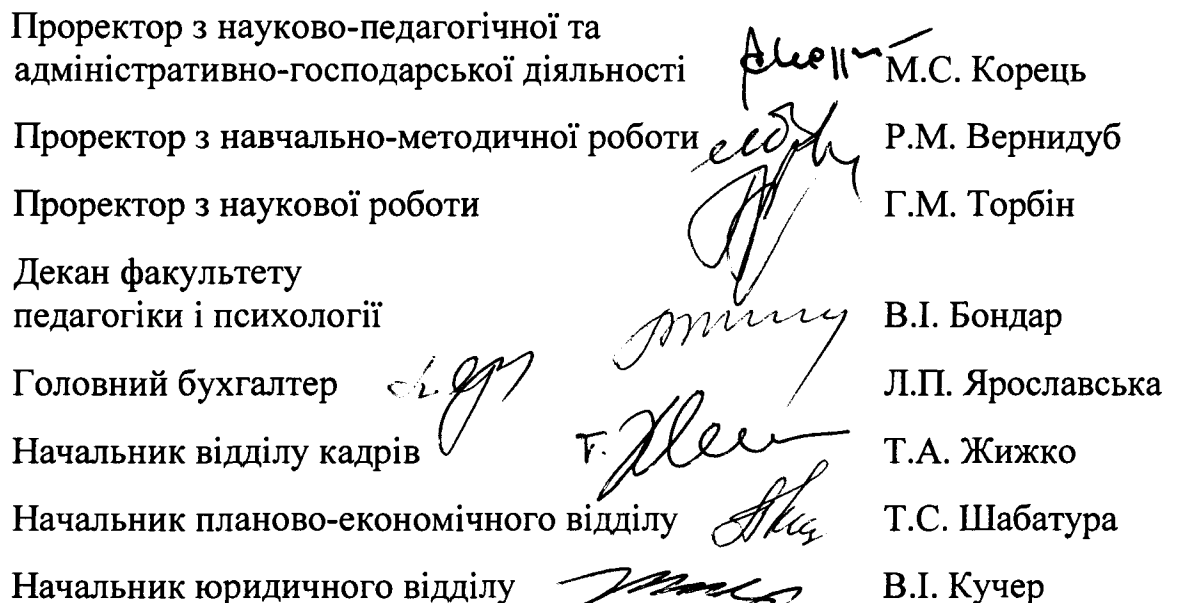 Проректор з науково-педагогічної та
адміністративно-господарської діяльності М.С. Корець
Проректор з навчально-методичної роботи Р.М. Вернидуб
Проректор з наукової роботи Г.М. Торбін
Декан факультету
педагогіки і психології В.І. Бондар
Головний бухгалтер Л.П. Ярославська
Начальник відділу кадрів Т.А. Жижко
Начальник планово-економічного відділу Т.С. Шабатура
Начальник юридичного відділу В.І. Кучер